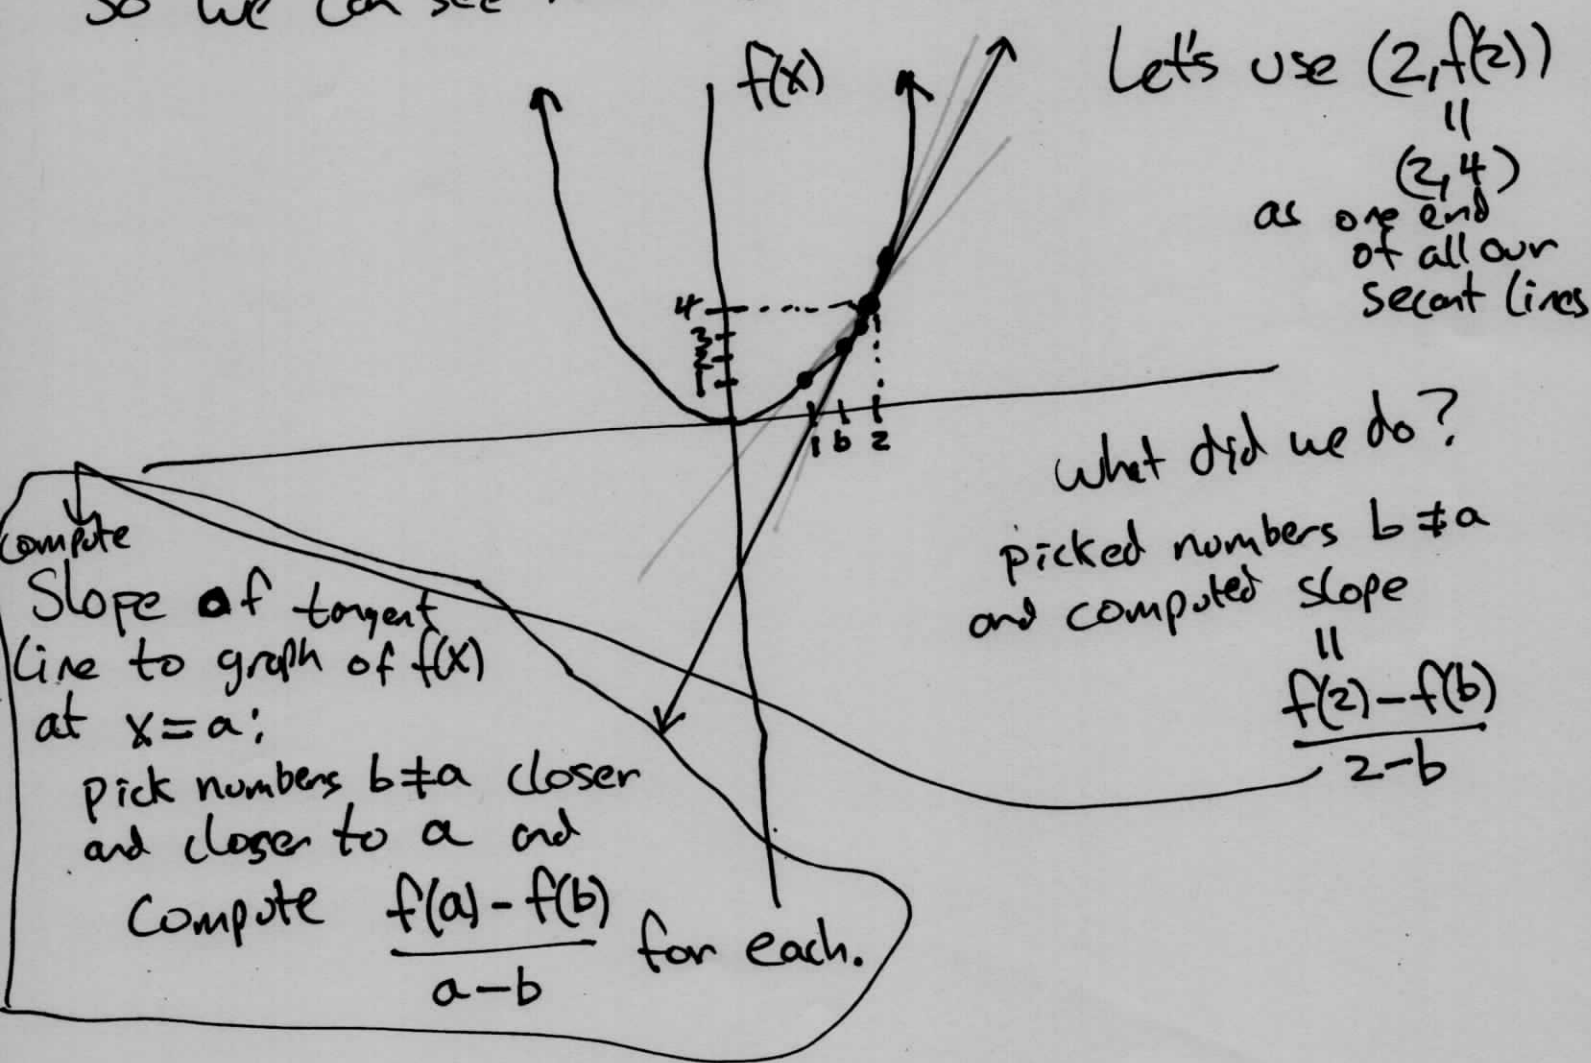 So we can see
f(x)
Let's use (2, f(2))
=
(2, 4)
as one end
of all our
secant lines
4
3
2
1
1 b 2
What did we do?
picked numbers b ≠ a
and computed slope
=
f(2) - f(b)
2 - b
compute
Slope of tangent
line to graph of f(x)
at x = a:
pick numbers b ≠ a closer
and closer to a and
compute f(a) - f(b) for each.
a - b